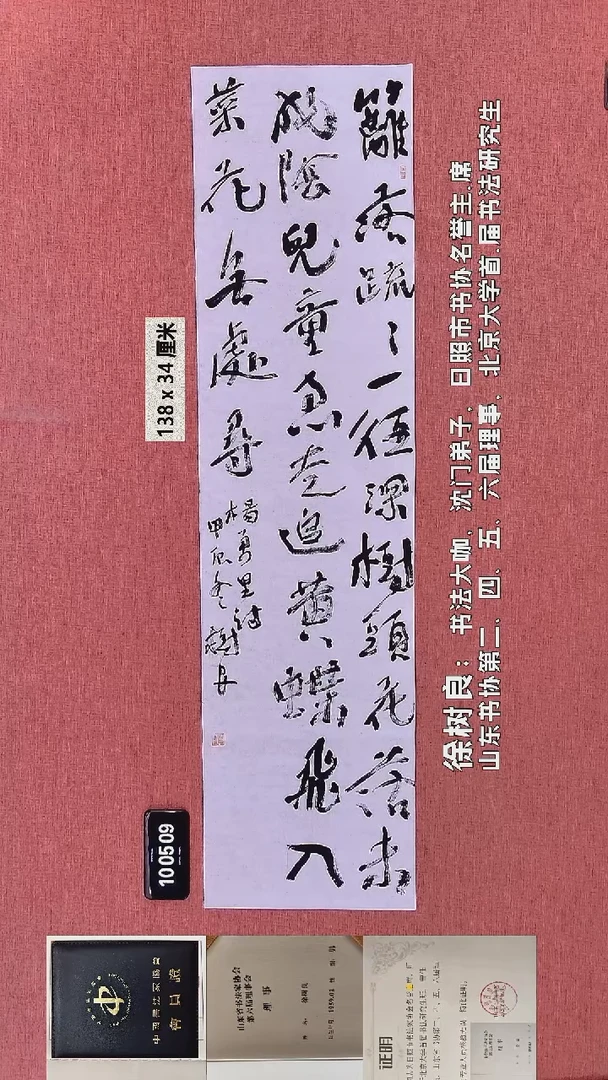 籬落疏〻一徑深樹頭花落未
成陰兒童急走追黄蝶飛入
菜花無處尋
楊萬里詩
甲辰冬樹良
138 x 34 厘米
徐树良：书法大咖、沈门弟子、日照市书协名誉主.席
山东书协第二、四、五、六届理事、北京大学首.届书法研究生
100509
中國書法家協會
會員證
山东省书法家协会
第六届理事会
理事
证明